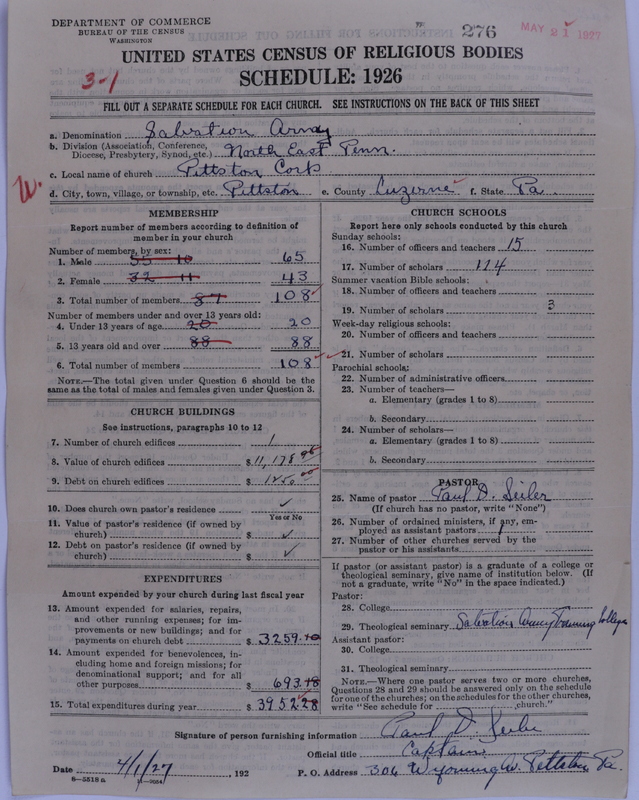 DEPARTMENT OF COMMERCE
BUREAU OF THE CENSUS
WASHINGTON
276
MAY 21 1927
UNITED STATES CENSUS OF RELIGIOUS BODIES
SCHEDULE: 1926
3-1
FILL OUT A SEPARATE SCHEDULE FOR EACH CHURCH. SEE INSTRUCTIONS ON THE BACK OF THIS SHEET
a. Denomination Salvation Army
b. Division (Association, Conference,
Diocese, Presbytery, Synod, etc.) North East Penn.
c. Local name of church Pittston Corps
W.
d. City, town, village, or township, etc. Pittston e. County Luzerne f. State Pa
MEMBERSHIP
Report number of members according to definition of
member in your church
Number of members, by sex:
1. Male 55 10 65
2. Female 32 11 43
3. Total number of members 87 108
Number of members under and over 13 years old:
4. Under 13 years of age 20 20
5. 13 years old and over 88 88
6. Total number of members 108
NOTE.—The total given under Question 6 should be the
same as the total of males and females given under Question 3.
CHURCH BUILDINGS
See instructions, paragraphs 10 to 12
7. Number of church edifices 1
8. Value of church edifices $11,178
9. Debt on church edifices $
10. Does church own pastor's residence ✓
Yes or No
11. Value of pastor's residence (if owned by
church) $ ✓
12. Debt on pastor's residence (if owned by
church) $ ✓
EXPENDITURES
Amount expended by your church during last fiscal year
13. Amount expended for salaries, repairs,
and other running expenses; for im-
provements or new buildings; and for
payments on church debt $3259.10
14. Amount expended for benevolences, in-
cluding home and foreign missions; for
denominational support; and for all
other purposes $693.18
15. Total expenditures during year $395228
CHURCH SCHOOLS
Report here only schools conducted by this church
Sunday schools:
16. Number of officers and teachers 15
17. Number of scholars 114
Summer vacation Bible schools:
18. Number of officers and teachers
19. Number of scholars 3
Week-day religious schools:
20. Number of officers and teachers
21. Number of scholars
Parochial schools:
22. Number of administrative officers
23. Number of teachers—
a. Elementary (grades 1 to 8)
b. Secondary
24. Number of scholars—
a. Elementary (grades 1 to 8)
b. Secondary
PASTOR
25. Name of pastor Paul D. Seiler
(If church has no pastor, write "None")
26. Number of ordained ministers, if any, em-
ployed as assistant pastors
27. Number of other churches served by the
pastor or his assistants
If pastor (or assistant pastor) is a graduate of a college or
theological seminary, give name of institution below. (If
not a graduate, write "No" in the space indicated.)
Pastor:
28. College
29. Theological seminary Salvation Army Training College
Assistant pastor:
30. College
31. Theological seminary
NOTE.—Where one pastor serves two or more churches,
Questions 28 and 29 should be answered only on the schedule
for one of the churches; on the schedules for the other churches,
write "See schedule for church."
Signature of person furnishing information Paul D. Seiler
Official title Captain
Date 4/1/27 192 P. O. Address 306 Wyoming Av. Pittston Pa.
8-5518 a